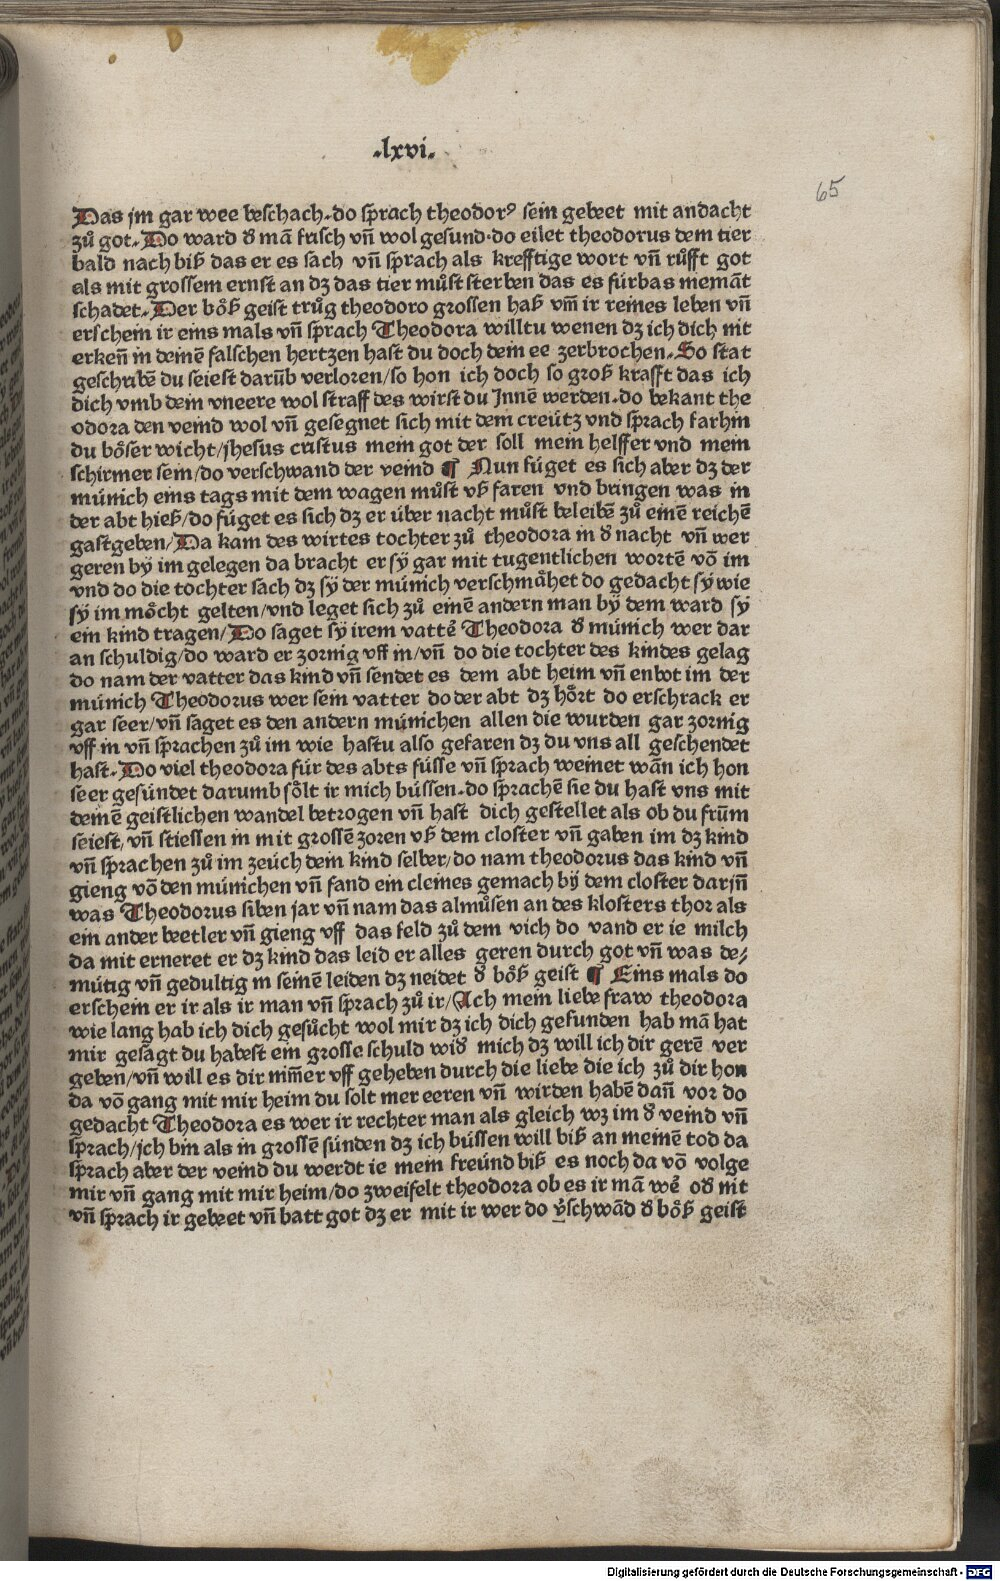 .lxvi.
65
Das jm gar wee beschach.do sprach theodorꝰ sein gebeet mit andacht
zů got.Do ward d̕ mã frisch vñ wol gesund.do eilet theodorus dem tier
bald nach biß das er es sach vñ sprach als krefftige wort vñ růfft got
als mit grossem ernst an dz das tier můst sterben das es fürbas niemãt
schadet.Der böß geist trůg theodoro grossen haß vm̃ ir reines leben vñ
erschein ir eins mals vñ sprach Theodora willtu wenen dz ich dich nit
erkeñ in deinẽ falschen hertzen hast du doch dein ee zerbrochen.So stat
geschribẽ du seiest darũb verloren/so hon ich doch so groß krafft das ich
dich vmb dein vneere wol straff des wirst du Jnnẽ werden.do bekant the
odora den veind wol vñ gesegnet sich mit dem creütz vnd sprach farhin
du böser wicht/jhesus cristus mein got der soll mein helffer vnd mein
schirmer sein/do verschwand der veind ¶ Nun füget es sich aber dz der
münich eins tags mit dem wagen můst vß faren vnd bringen was in
der abt hieß/do füget es sich dz er über nacht můst beleibẽ zů einẽ reichẽ
gastgeben/Da kam des wirtes tochter zů theodora in d̕ nacht vñ wer
geren bÿ im gelegen da bracht er sÿ gar mit tugentlichen wortẽ võ im
vnd do die tochter sach dz sÿ der münich verschmähet do gedacht sÿ wie
sÿ im möcht gelten/vnd leget sich zů einẽ andern man bÿ dem ward sÿ
ein kind tragen/Do saget sÿ irem vatter̃ Theodora d̕ münich wer dar
an schuldig/do ward er zornig vff in/vñ do die tochter des kindes gelag
do nam der vatter das kind vñ sendet es dem abt heim vñ enbot im der
münich Theodorus wer sein vatter do der abt dz hört do erschrack er
gar seer/vñ saget es den andern münichen allen die wurden gar zornig
vff in vñ sprachen zů im wie hastu also gefaren dz du vns all geschendet
hast.Do viel theodora für des abts füsse vñ sprach weinet wañ ich hon
seer gesündet darumb sölt ir mich büssen.do sprachẽ sie du hast vns mit
deinẽ geistlichen wandel betrogen vñ hast dich gestellet als ob du frũm
seiest/vñ stiessen in mit grossẽ zoren vß dem closter vñ gaben im dz kind
vñ sprachen zů im zeüch dein kind selber/do nam theodorus das kind vñ
gieng võ den münichen vñ fand ein cleines gemach bÿ dem closter darjñ
was Theodorus siben jar vñ nam das almůsen an des klosters thor als
ein ander beetler vñ gieng vff das feld zů dem vich do vand er ie milch
da mit erneret er dz kind das leid er alles geren durch got vñ was de/
mütig vñ gedultig in seinẽ leiden dz neidet d̕ böß geist ¶ Eins mals do
erschein er ir als ir man vñ sprach zů ir/Ach mein liebe fraw theodora
wie lang hab ich dich gesůcht wol mir dz ich dich gefunden hab mã hat
mir gesagt du habest ein grosse schuld wid̕ mich dz will ich dir gerẽ ver
geben/vñ will es dir nim̃er vff geheben durch die liebe die ich zů dir hon
da võ gang mit mir heim du solt mer eeren vñ wirden habẽ dañ vor do
gedacht Theodora es wer ir rechter man als gleich wz im d̕ veind vñ
sprach/ich bin als in grossẽ sünden dz ich büssen will biß an meinẽ tod da
sprach aber der veind du werdt ie mein freünd biß es noch da võ volge
mir vñ gang mit mir heim/do zweifelt theodora ob es ir mã wer̃ od̕ nit
vñ sprach ir gebeet vñ batt got dz er mit ir wer do v̕schwãd d̕ böß geist
Digitalisierung gefördert durch die Deutsche Forschungsgemeinschaft - DFG